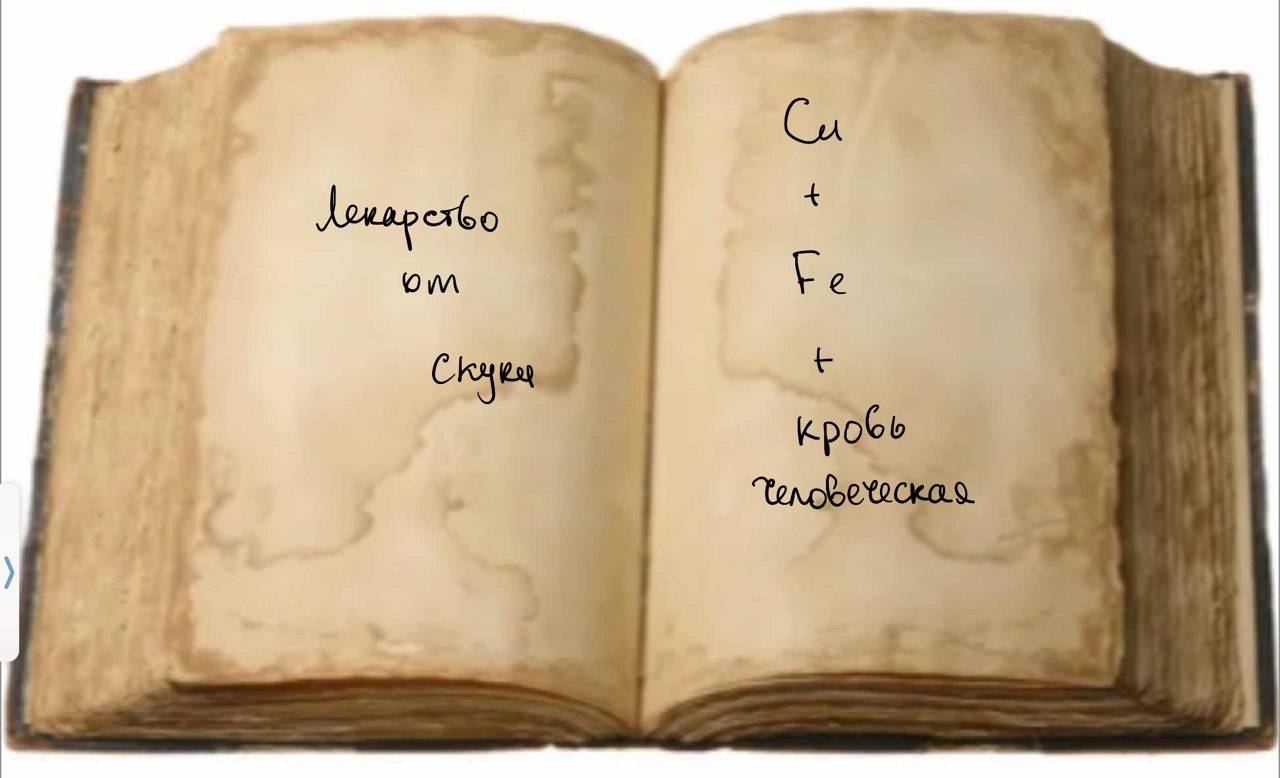 Лекарство
от
скуки
Cu
+
Fe
+
кровь
человеческая